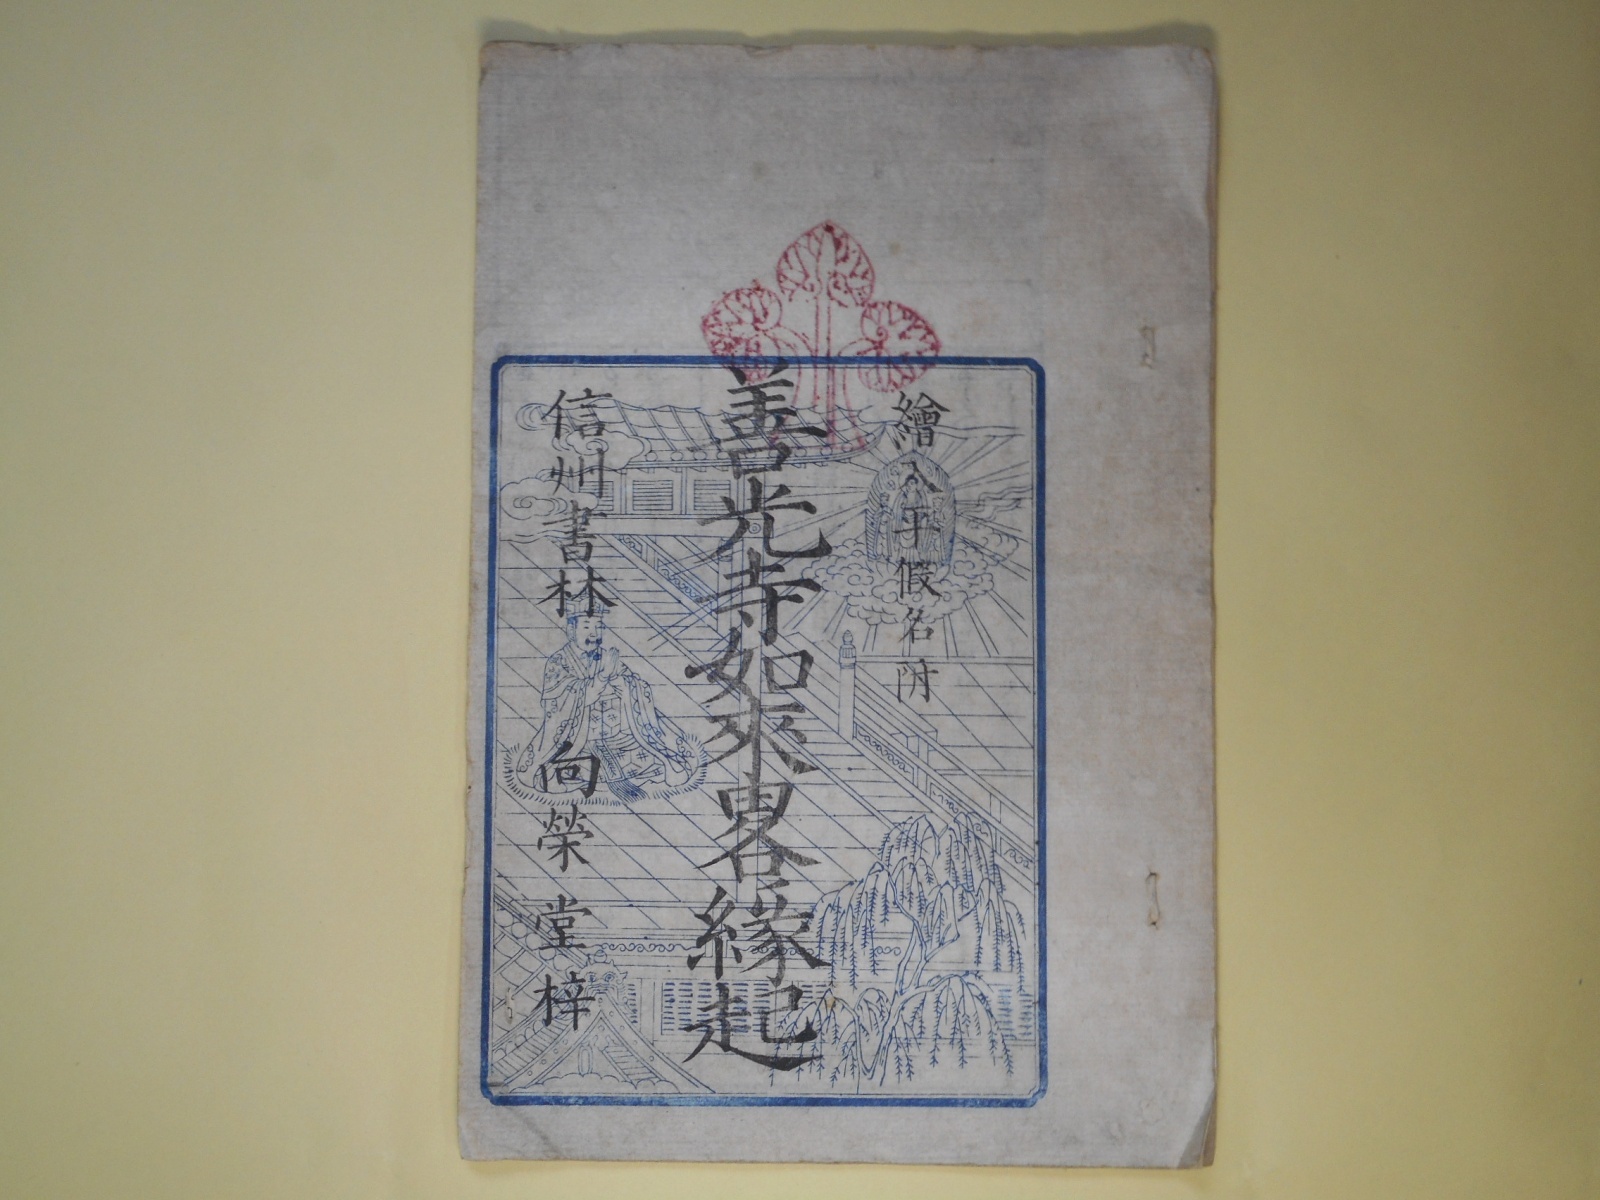 繪入平假名附
善光寺如來畧緣起
信州書林 向榮堂梓